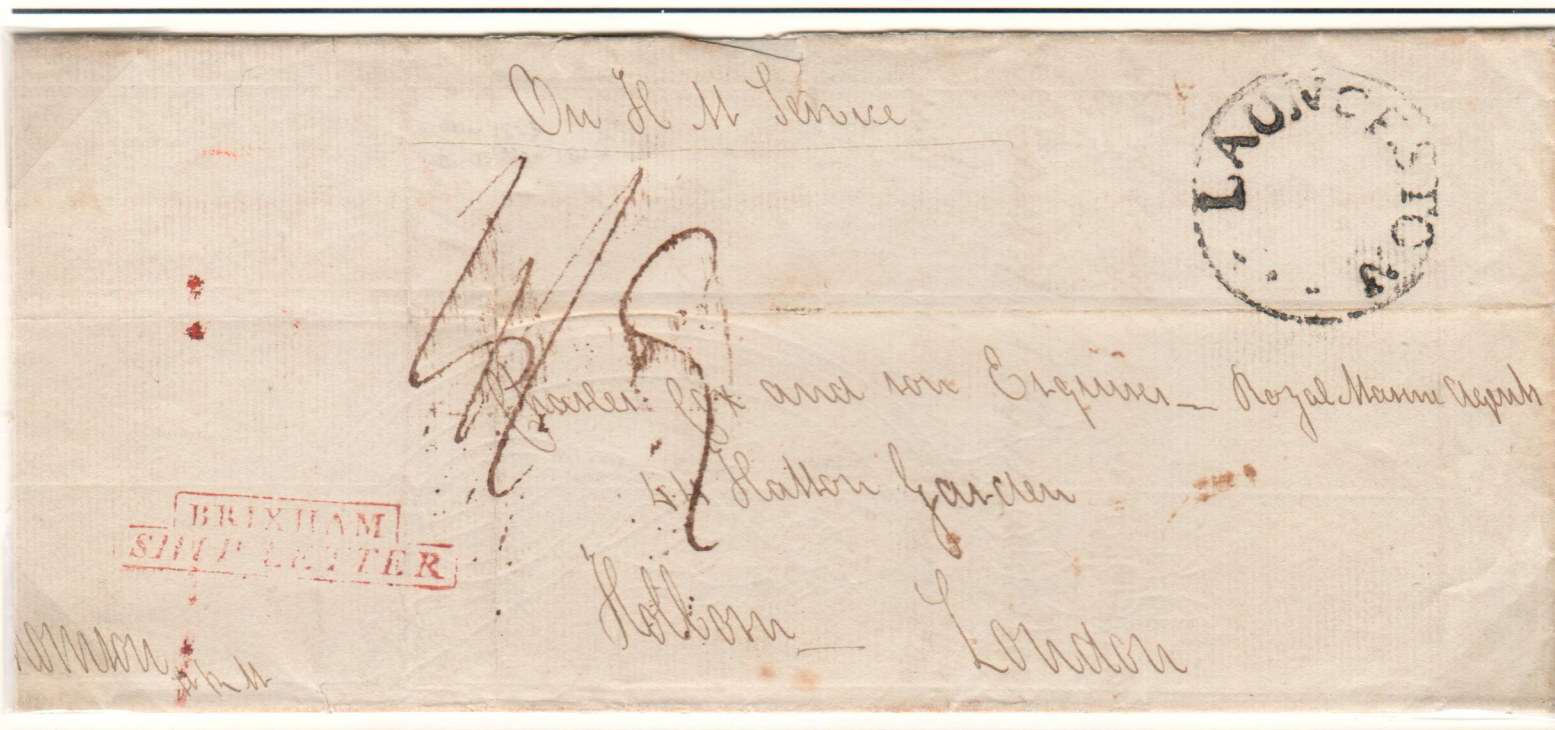 On H M Service
LAUNCESTON
4/5
and son Esquires — Royal Marine Agents
44 Hatton Garden
Holborn — London
BRIXHAM
SHIP LETTER